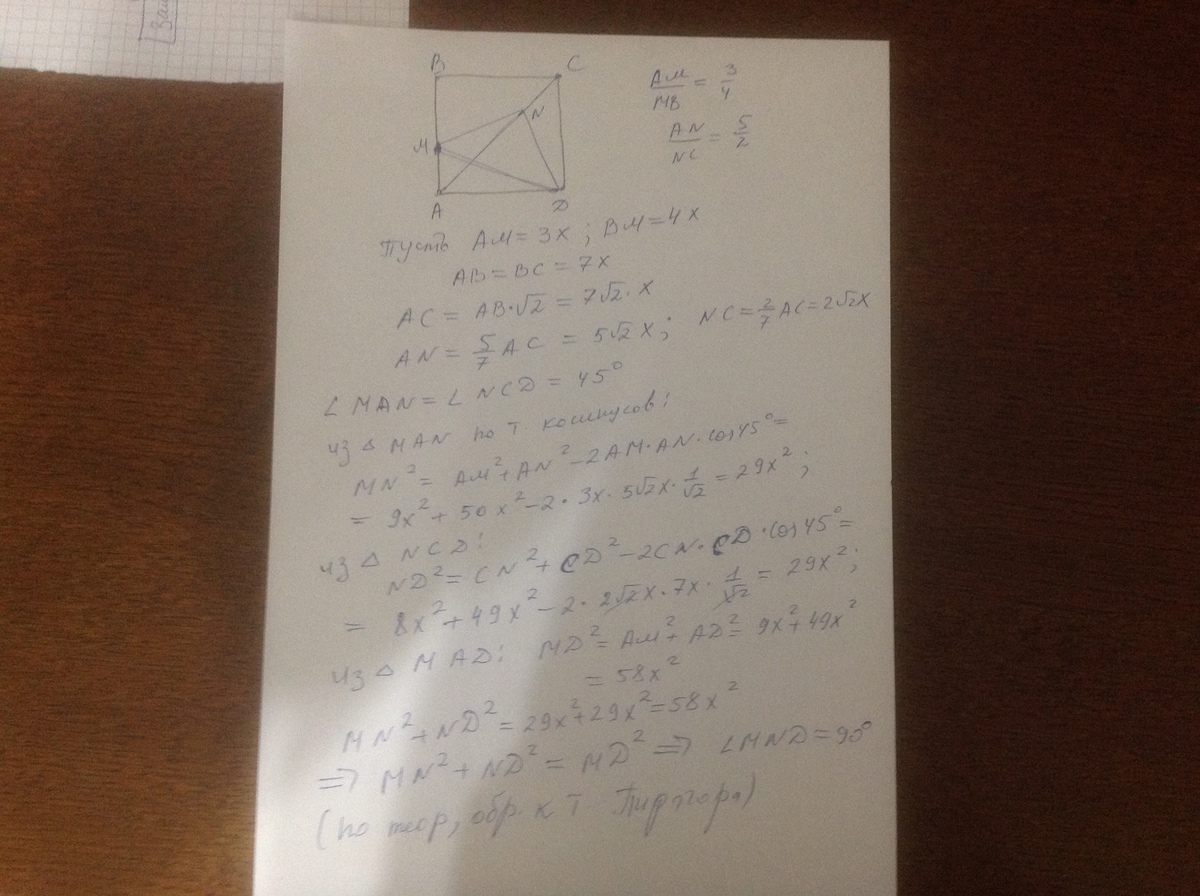 Зап
B C
AM/MB = 3/4
N
AN/NC = 5/2
M
A D
Пусть AM = 3x ; BM = 4x
AB = BC = 7x
AC = AB·√2 = 7√2·x
AN = 5/7 AC = 5√2x ; NC = 2/7 AC = 2√2x
∠MAN = ∠NCD = 45°
из △ MAN по т. косинусов:
MN² = AM² + AN² - 2AM·AN·cos45° =
= 9x² + 50x² - 2·3x·5√2x·1/√2 = 29x² ;
из △ NCD:
ND² = CN² + CD² - 2CN·CD·cos45° =
= 8x² + 49x² - 2·2√2x·7x·1/√2 = 29x² ;
из △ MAD: MD² = AM² + AD² = 9x² + 49x²
= 58x²
MN² + ND² = 29x² + 29x² = 58x²
=> MN² + ND² = MD² => ∠MND = 90°
(по теор, обр. к т. Пифагора)